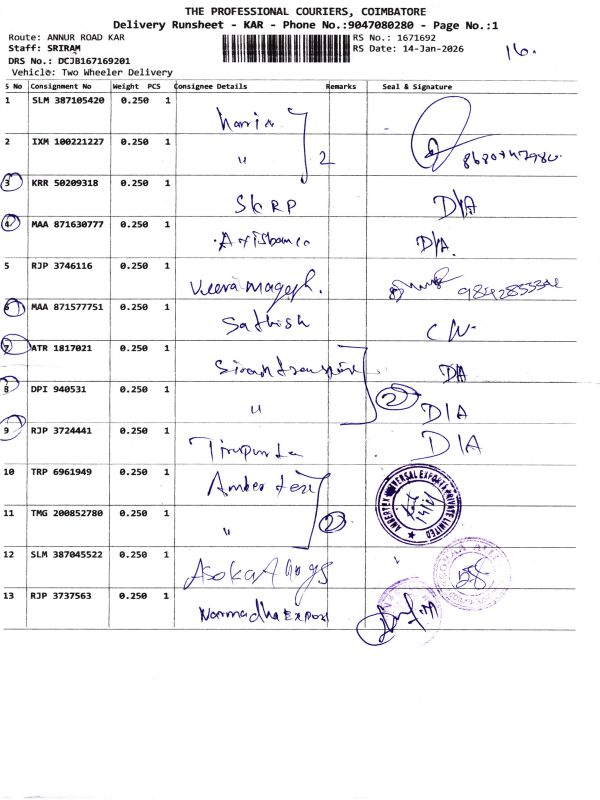 THE PROFESSIONAL COURIERS, COIMBATORE
Delivery Runsheet - KAR - Phone No.:9047080280 - Page No.:1
Route: ANNUR ROAD KAR RS No.: 1671692
Staff: SRIRAM RS Date: 14-Jan-2026 16.
DRS No.: DCJB167169201
Vehicle: Two Wheeler Delivery
S No Consignment No Weight PCS Consignee Details Remarks Seal & Signature
1 SLM 387105420 0.250 1
2 IXM 100221227 0.250 1 " 2
3 KRR 50209318 0.250 1 SKRP D/A
4 MAA 871630777 0.250 1 D/A.
5 RJP 3746116 0.250 1 Veeramagesh.
6 MAA 871577751 0.250 1 Sathish
7 ATR 1817021 0.250 1 D/A
8 DPI 940531 0.250 1 " 2 D/A
9 RJP 3724441 0.250 1 D/A
10 TRP 6961949 0.250 1 AMBERTEX UNIVERSAL EXPORTS PRIVATE LIMITED
11 TMG 200852780 0.250 1 " 2
12 SLM 387045522 0.250 1
13 RJP 3737563 0.250 1 Narmadha Export